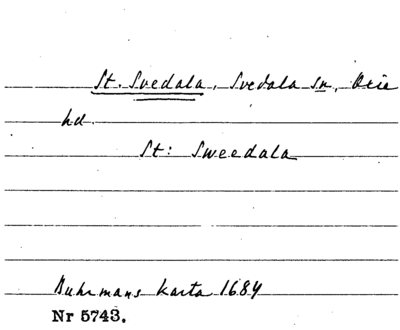 St. Svedala, Svedala sn, Oxie
hd.
St: Sweedala
Buhrmans karta 1684
Nr 5743.